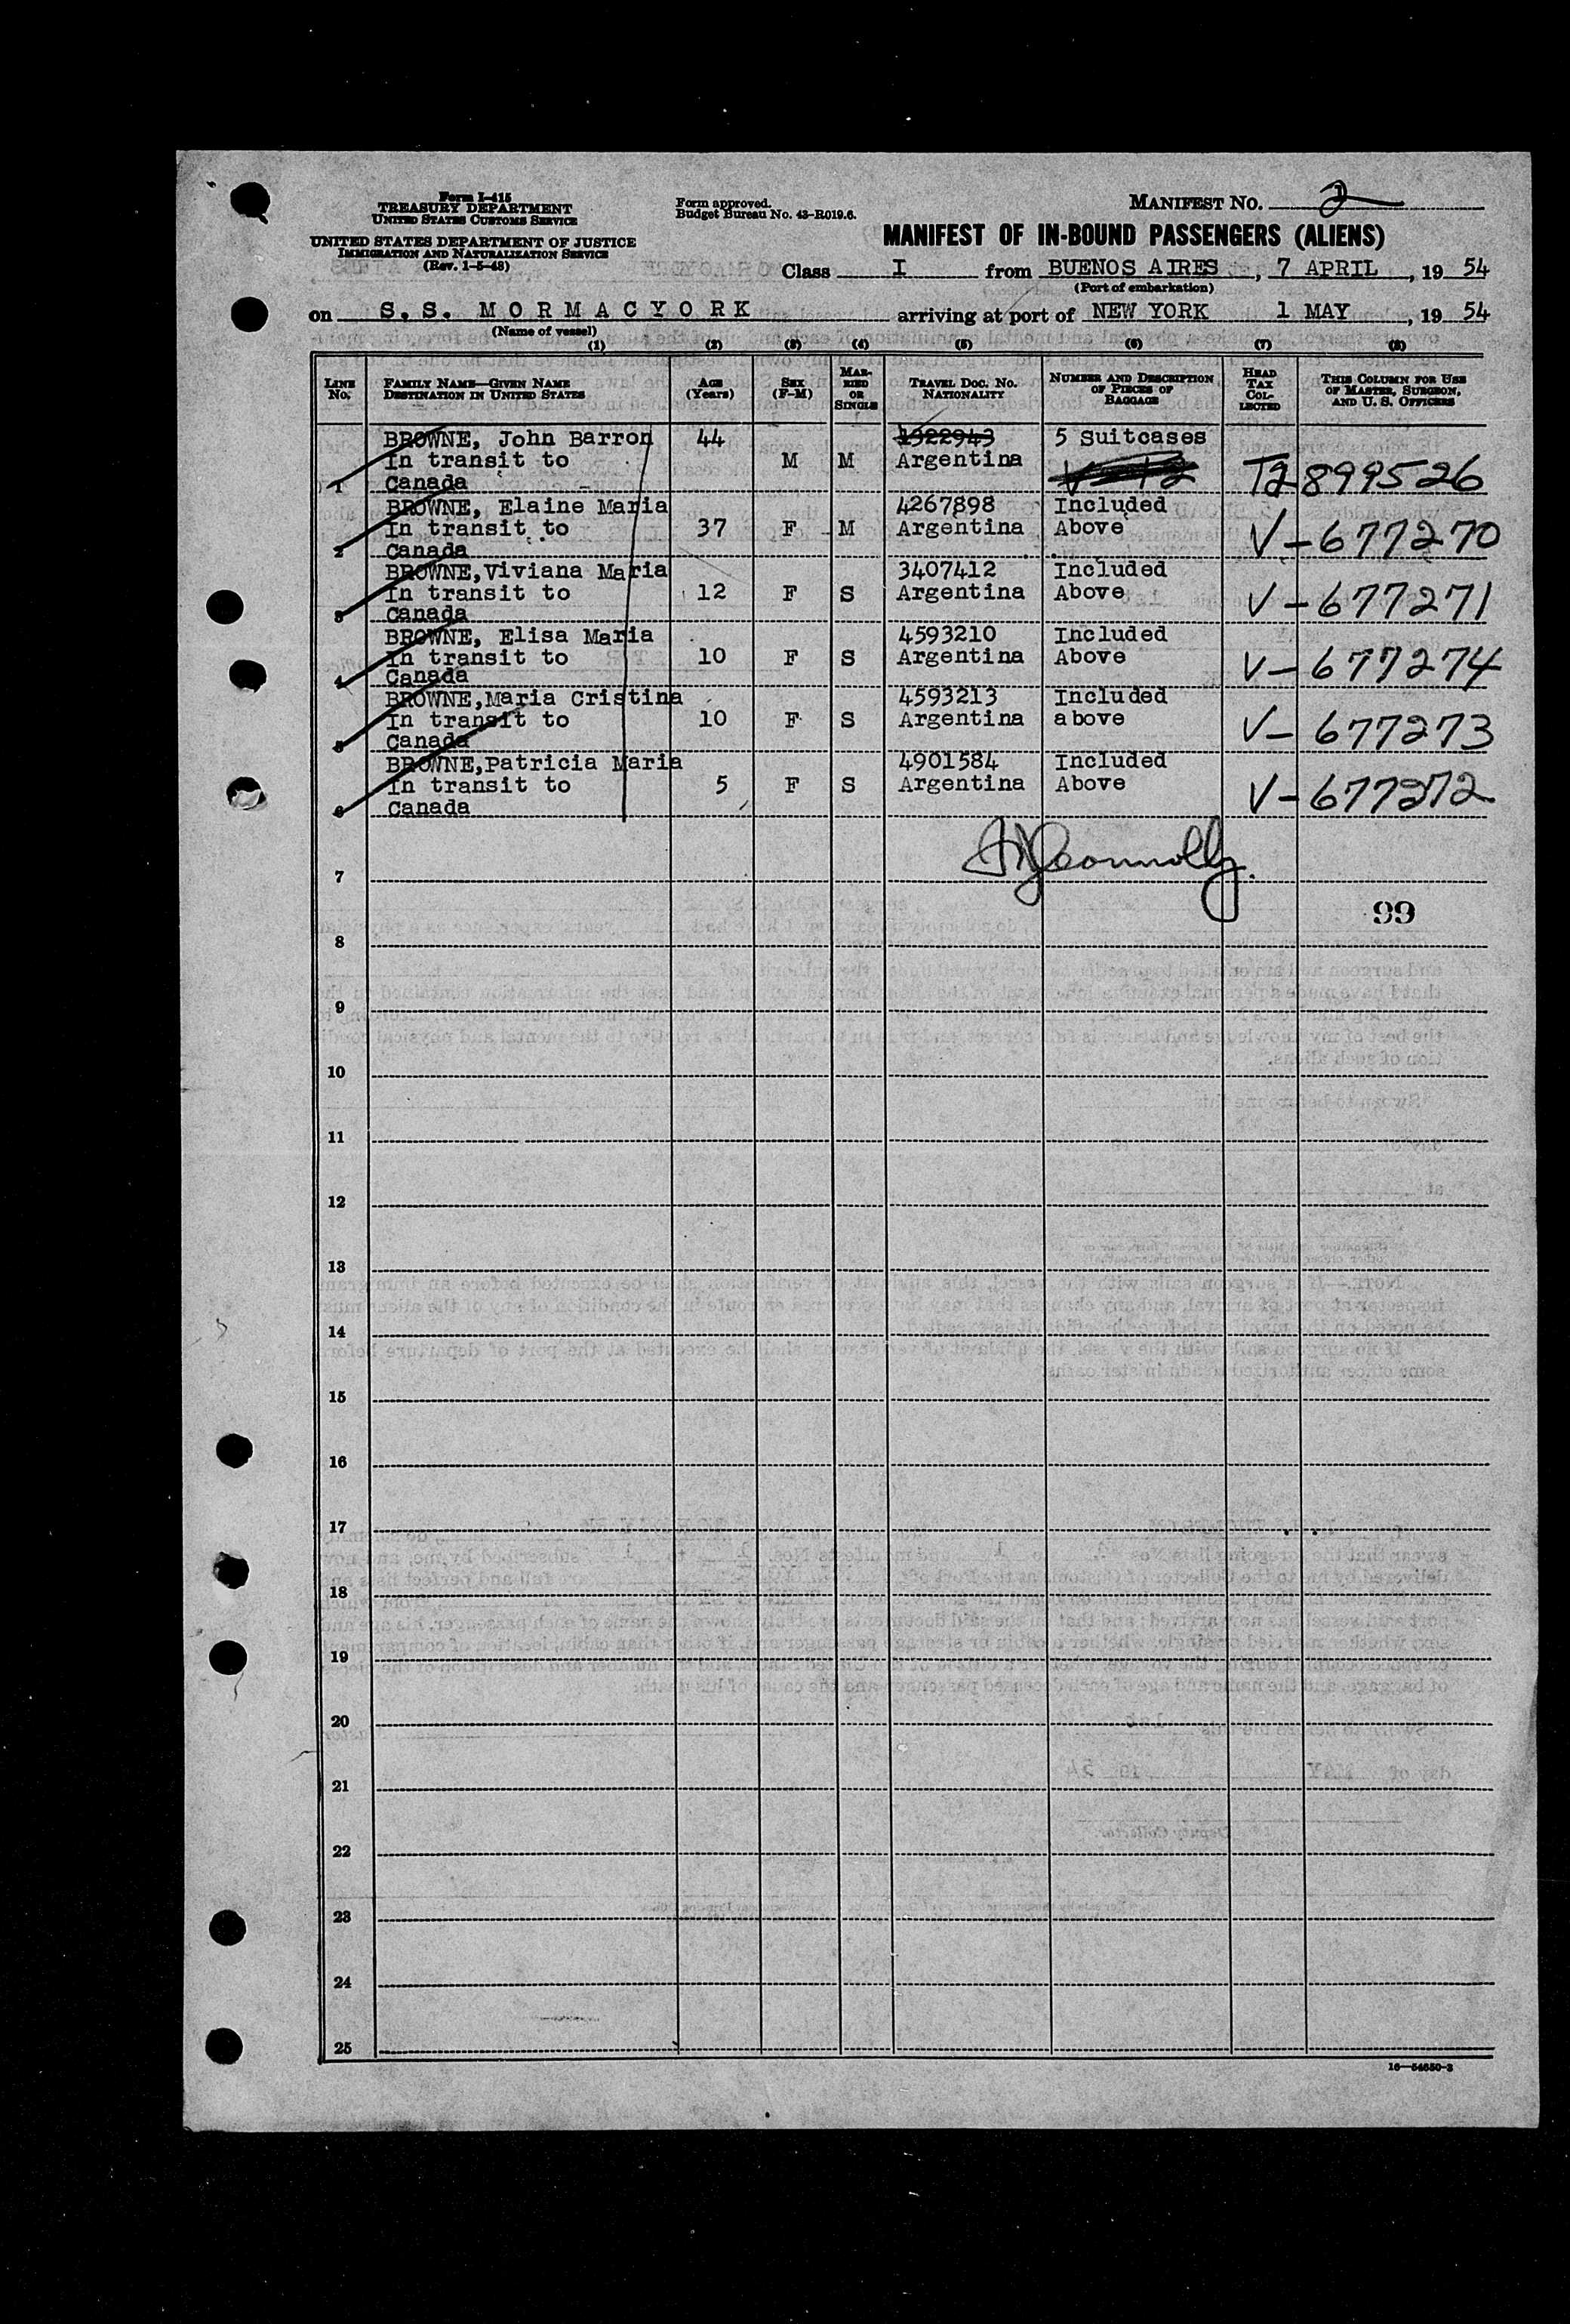 Form I-415
TREASURY DEPARTMENT
UNITED STATES CUSTOMS SERVICE
UNITED STATES DEPARTMENT OF JUSTICE
IMMIGRATION AND NATURALIZATION SERVICE
(Rev. 1-5-48)
Form approved.
Budget Bureau No. 43-R019.6.
MANIFEST NO. 2
MANIFEST OF IN-BOUND PASSENGERS (ALIENS)
Class I from BUENOS AIRES, 7 APRIL, 19 54
(Port of embarkation)
on S.S. MORMACYORK arriving at port of NEW YORK 1 MAY, 19 54
(Name of vessel)
(1) (2) (3) (4) (5) (6) (7) (8)
LINE No. FAMILY NAME—GIVEN NAME DESTINATION IN UNITED STATES AGE (Years) SEX (F-M) MARRIED OR SINGLE TRAVEL DOC. NO. NATIONALITY NUMBER AND DESCRIPTION OF PIECES OF BAGGAGE HEAD TAX COLLECTED THIS COLUMN FOR USE OF MASTER, SURGEON, AND U. S. OFFICERS
BROWNE, John Barron 44 1322943 5 Suitcases
In transit to M M Argentina
1 Canada T2 899526
BROWNE, Elaine Maria 4267898 Included
In transit to 37 F M Argentina Above
2 Canada V-677270
BROWNE, Viviana Maria 3407412 Included
In transit to 12 F S Argentina Above
3 Canada V-677271
BROWNE, Elisa Maria 4593210 Included
In transit to 10 F S Argentina Above
4 Canada V-677274
BROWNE, Maria Cristina 4593213 Included
In transit to 10 F S Argentina above
5 Canada V-677273
BROWNE, Patricia Maria 4901584 Included
In transit to 5 F S Argentina Above
6 Canada V-677272
7
99
8
9
10
11
12
13
14
15
16
17
18
19
20
21
22
23
24
25
16—54650-3